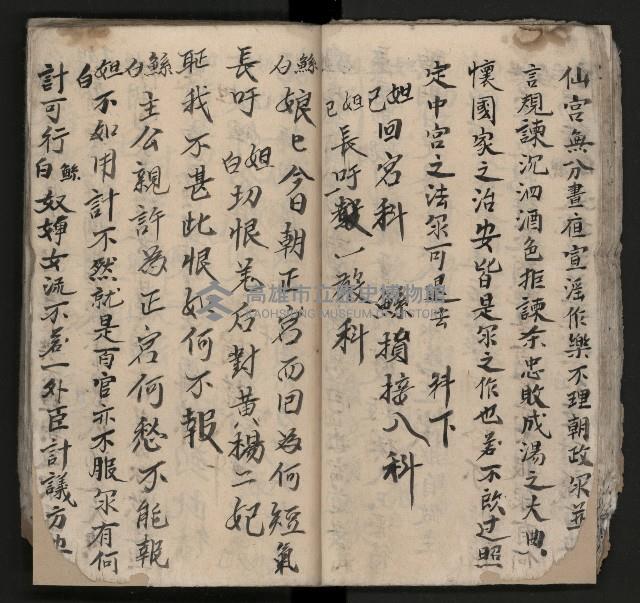 仙宮無分晝夜宣淫作樂不理朝政尔並
言規諫沉泗酒色拒諫杀忠敗成湯之大典
懷國家之治安皆是尔之作也若不改过照
定中宮之法尔可是去 科下
妲己回宮科 接入科
妲己長吁 科
鯀白娘匕今日朝正宮而囬為何短氣
長吁 妲白切恨姜后對黃楊二妃
恥我不甚此恨如何不報
鯀白主公親許為正宮何愁不能報
妲白不如用計不然就是百官亦不服尔有何
計可行 鯀白奴婢女流不若一外臣計議方也
高雄市立歷史博物館
KAOHSIUNG MUSEUM OF HISTORY